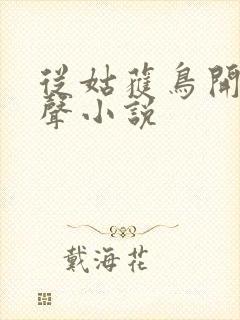 從姑蘸鳥開
聲小說
戴海花